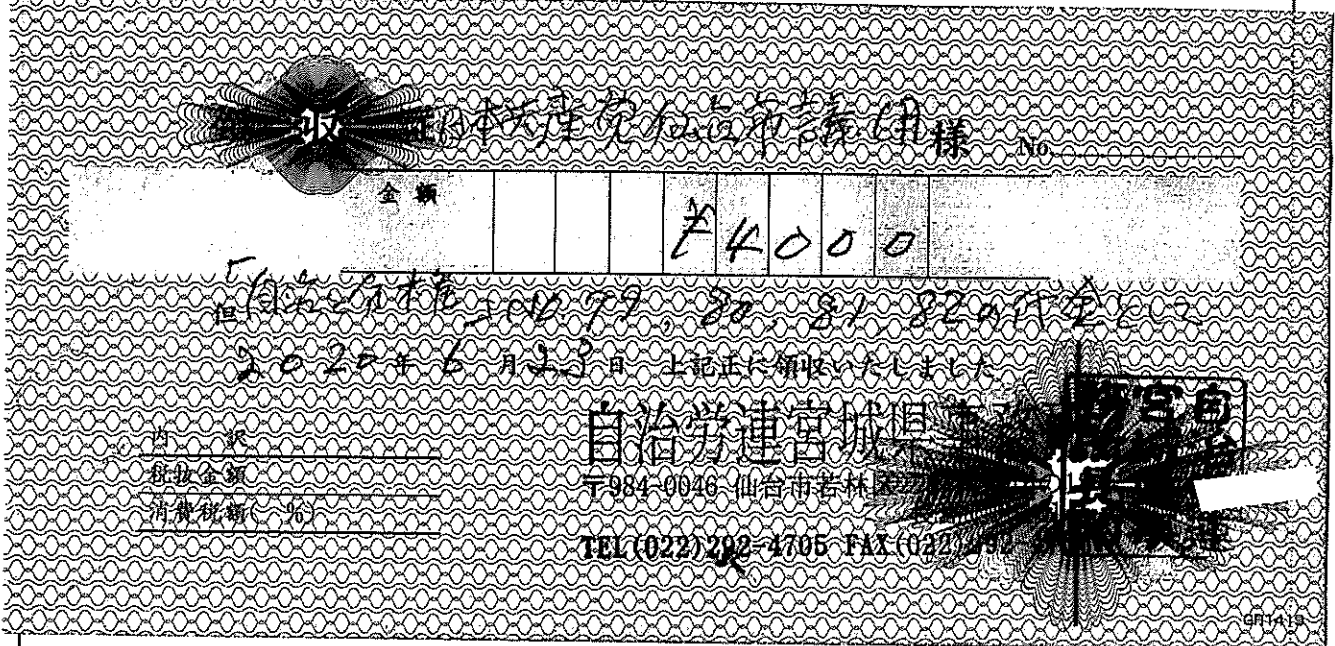 収 日本共産党仙台市議団様 No.
金額 ¥4000
但「自治と分権」No.79, 80, 81, 82の代金として
2020年6月23日 上記正に領収いたしました
内訳
税抜金額
消費税額( %)
自治労連宮城県
〒984-0046 仙台市若林区
TEL(022)292-4705 FAX(022)292-
GR1419